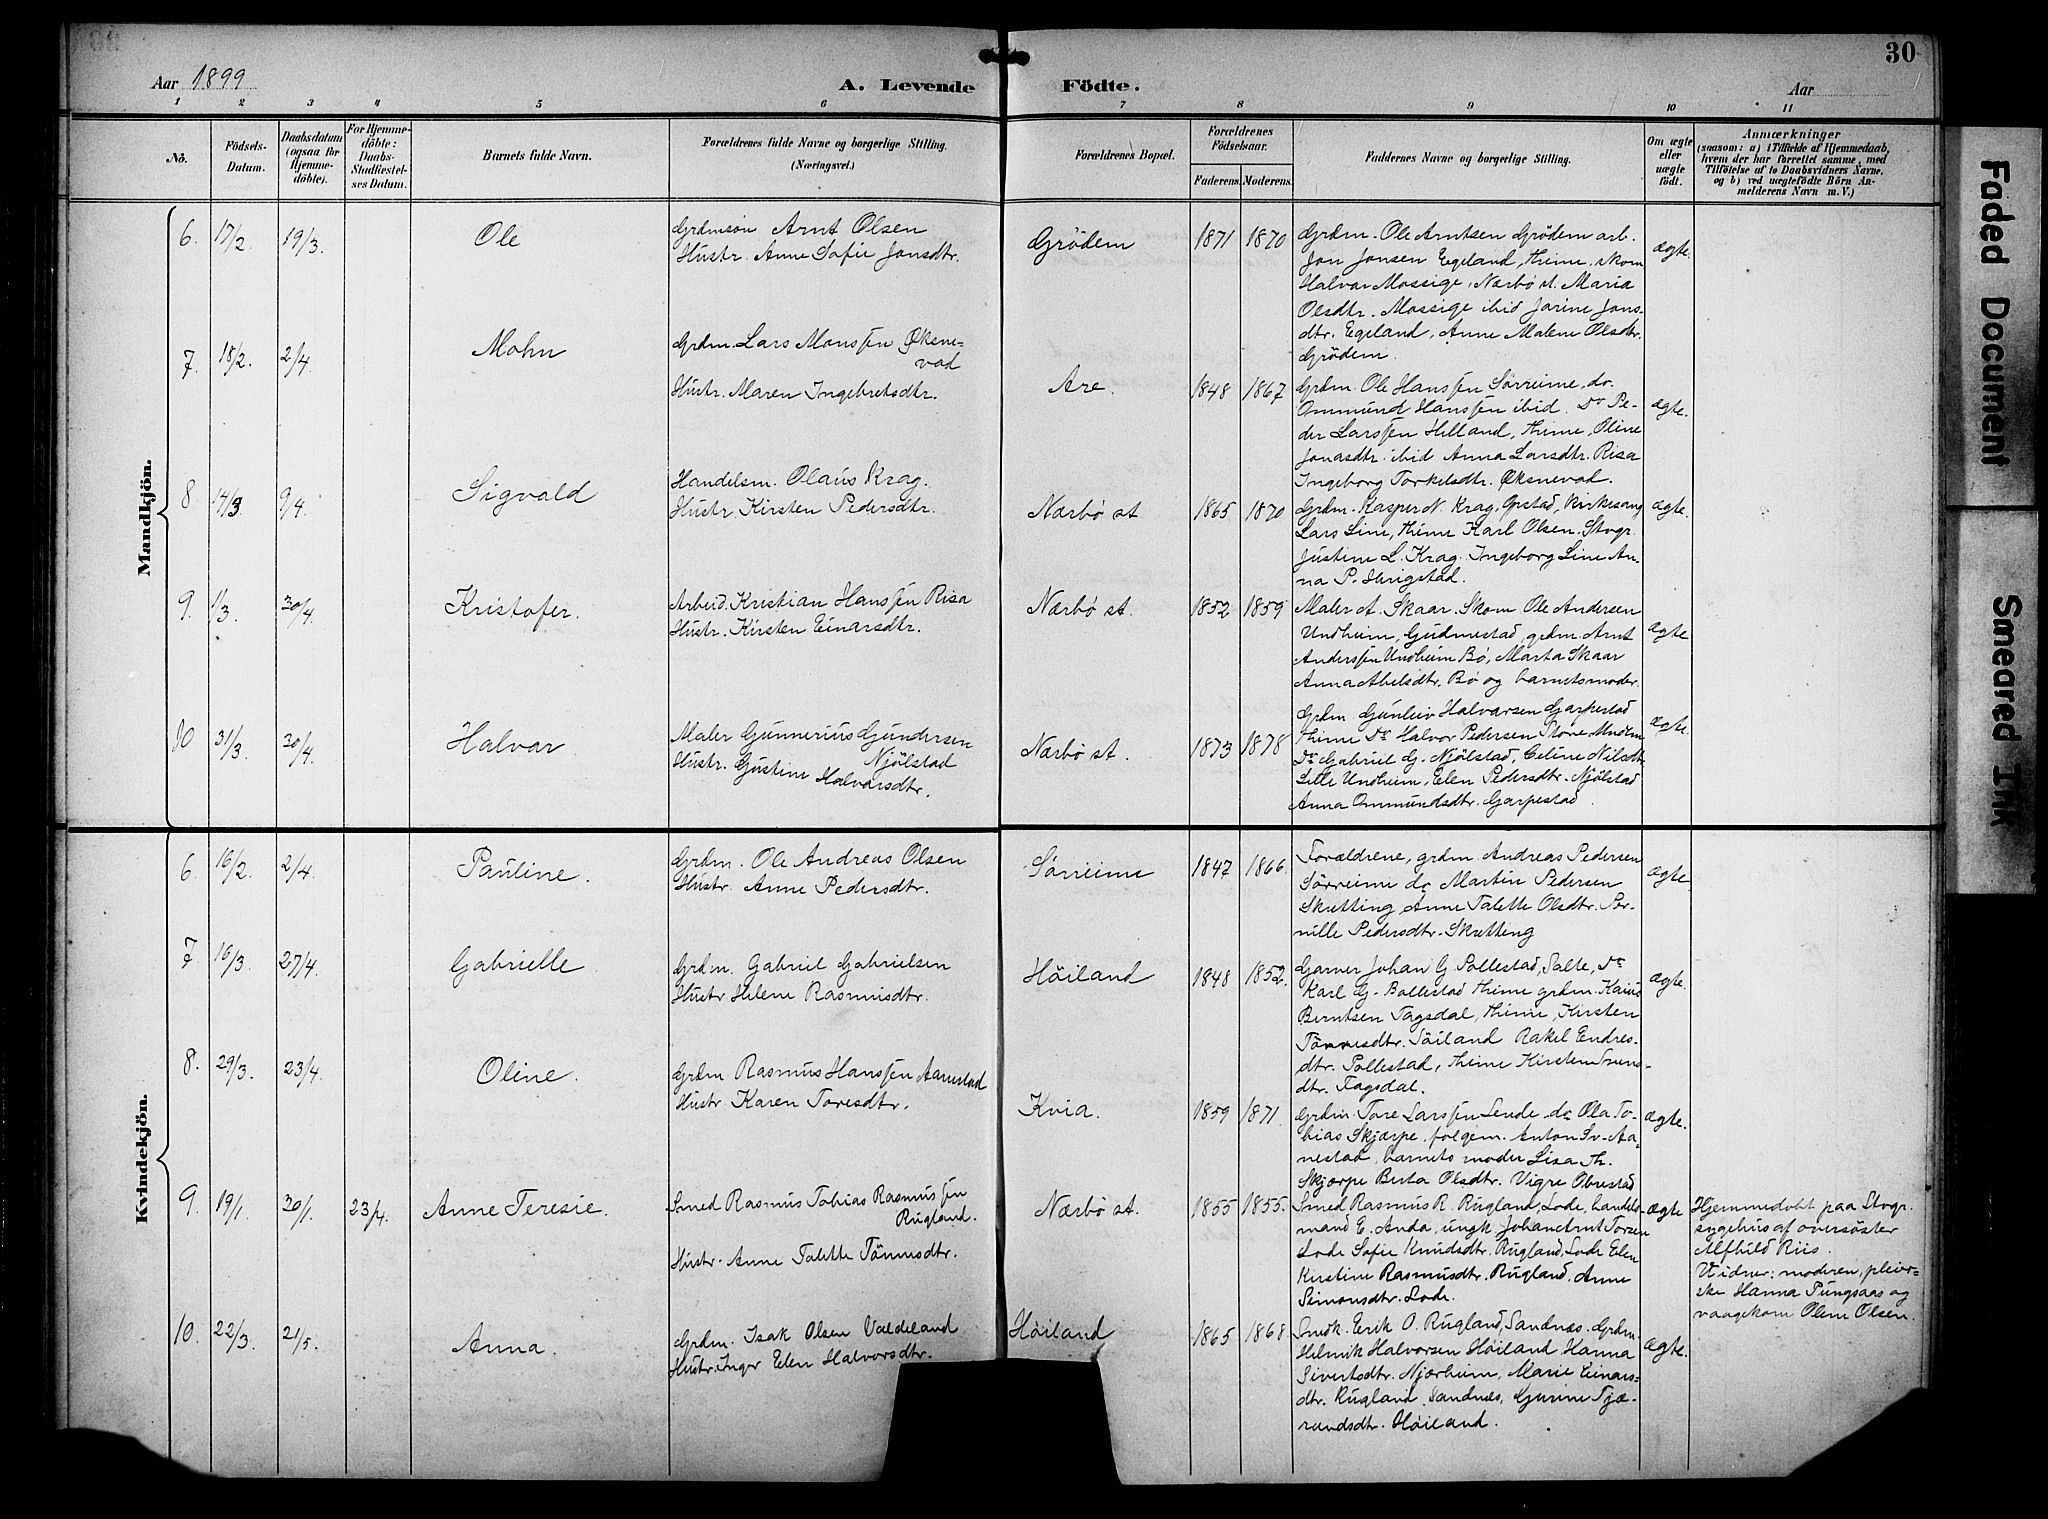 30
Aar 1899
A. Levende Födte.
Aar
1 2 3 4 5 6 7 8 9 10 11
No.
Födsels-Datum.
Daabsdatum (ogsaa for Hjemme-döbte).
For Hjemme-döbte: Daabs-Stadfæstel-ses Datum.
Barnets fulde Navn.
Forældrenes fulde Navne og borgerlige Stilling. (Næringsvei.)
Forældrenes Bopæl.
Forældrenes Födselsaar.
Faderens. Moderens.
Faddernes Navne og borgerlige Stilling.
Om ægte eller uægte födt.
Anmærkninger
(saasom: a) i Tilfælde af Hjemmedaab,
hvem der har forrettet samme, med
Tilföielse af to Daabsvidners Navne,
og b) ved uægtefödte Börn An-
melderens Navn m. V.)
Mandkjön.
6. 17/2 19/3. Ole
Grdmsøn Arnt Olsen
Hustr. Anne Sofie Jonsdtr.
Grödem 1871 1870
Grdm. Ole Arntsen Grödem arb.
Jon Jonsen Egeland, Thime. skom
Halvar Mossige, Nærbö st. Maria
Olsdtr. Mossige ibid Jorine Jons-
dtr. Egeland, Anne Malene Olsdtr.
Grödem.
ægte.
7. 18/2. 2/4. Mohn
Grdm. Lars Monssen Øksne-
vad
Hustr. Maren Ingebretsdtr.
Are. 1848 1867
Grdm. Ole Hanssen Sørreime, do.
Ommund Hanssen ibid. Do Pe-
der Larssen Helland, Thime, Oline
Jonasdtr. ibid Anna Larsdtr. Risa
Ingeborg Torkelsdtr. Øksnevad.
ægte.
8 14/3 9/4. Sigvald
Handelsm. Olaus Krag.
Hustr. Kirsten Pedersdtr.
Nærbö st 1865 1870
Grdm. Kasper N. Krag, Opstad, kirkesang
Lars Line, Thime Karl Olsen. Stvgr.
Justine L. Krag. Ingeborg Line An-
na P. Hrigstad.
ægte.
9. 1/3. 30/4. Kristofer.
Arbeid. Kristian Hanssen Risa
Hustr. Kirsten Einarsdtr.
Nærbö st. 1852 1859
Maler A. Skaar. Skom Ole Andersen
Undheim, Gudmestad, grdm. Arnt
Anderssen Undheim Bö, Marta Skaar
Anna Abelsdtr. Bö og barnets moder.
ægte
10 31/3 30/4. Halvar
Maler Gunnerius Gundersen
Njölstad
Hustr. Gustine Halvarsdtr.
Nærbö st. 1873 1878
Grdm Gunleiv Halvarsen Garpestad
Thime Do Halvor Pedersen Store Undem
Do Gabriel G. Njölstad, Celine Nilsdtr.
Lille Undheim, Elen Pedersdtr. Njölstad
Anna Ommundsdtr. Garpestad.
ægte.
Kvindekjön.
6. 16/2. 2/4. Pauline.
Grdm. Ole Andreas Olsen
Hustr. Anne Pedersdtr.
Sørreime 1847 1866
Forældrene, grdm. Andreas Pedersen
Sörreime do Martin Pedersen
Skretting, Anne Talette Olsdtr. Per-
nille Pedersdtr. Skretting
ægte
7 16/3. 27/4. Gabrielle
Grdm. Gabriel Gabrielsen
Hustr Helene Rasmusdtr.
Höiland 1848 1852.
Garver Johan G. Pollestad, Salte, Do
Karl G. Pollestad Thime grdm. Kaius
Berntsen Tagsdal, Thime, Kirsten
Tönnesdtr. Höiland Rakel Endres-
dtr. Pollestad, Thime Kirsten Svens-
dtr. Tagsdal.
ægte.
8. 29/3. 23/4. Oline.
Grdm Rasmus Hanssen Aanestad
Hustr Karen Toresdtr.
Kvia. 1859 1871.
Grdm. Tore Larssen Lende, do Ola To-
bias Skjærpe, folgem. Anton Sv. Aa-
nestad, barnets moder Lisa Th.
Skjærpe Berta Olsdtr. Vigre Obrestad
ægte.
9. 19/1. 30/1. 23/4. Anne Teresie.
Smed Rasmus Tobias Rasmussen
Rugland.
Hustr. Anne Talette Tönnesdtr.
Nærbö st. 1855 1855.
Smed Rasmus R. Rugland, Lode, handels
mand E. Anda, ungk Johan Arnt Torsen
Lode Sofie Knudsdtr. Rugland, Lode Elen
Kirstine Rasmusdtr. Rugland, Anne
Simonsdtr. Lode.
ægte
Hjemmedøbt paa Stvgr.
sygehus af oversøster
Alfhild Riis.
Vidner: moderen, pleier-
ske Hanna Pungsaas og
vaagekom Olene Olsen.
10. 22/3. 21/5. Anna.
Grdm. Isak Olsen Valdeland
Hustr. Inger Elen Halvorsdtr.
Höiland 1865 1868
Smdk. Erik O. Rugland, Sandnæs. Grdm.
Helmik Halvorsen Höiland Hanna
Sivertsdtr. Njærheim, Marie Einars-
dtr. Rugland, Sandnæs, Gurine Tjæ-
randsdtr. Höiland.
ægte.
Faded Document
Smeared Ink